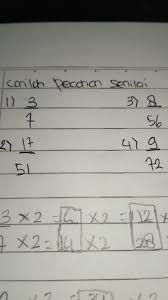 Carilah pecahan senilai
1) 3/7 3) 8/56
2) 17/51 4) 9/72
3 × 2 = 6 × 2 = 12
7 × 2 = 14 × 2 = 28